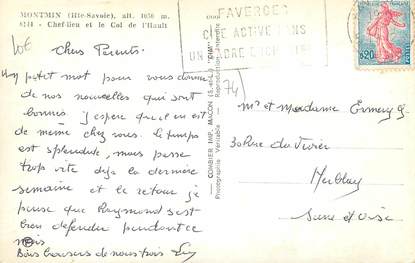 MONTMIN (Hte-Savoie), alt. 1050 m.
Chef-lieu et le Col de l'Hault
Chers Parents
Un petit mot pour vous donner
de nos nouvelles qui sont
bonnes j'espère qu'il en est
de meme chez vous. Le temps
est splendide, mais passe
trop vite déja la dernière
semaine et le retour je
pense que Raymond s'est
bien defendu pendant ce
mois
Bons baisers de nous trois
COMBIER IMP. MACON
Photographie Véritable - Reproduction Interdite
FAVERGES
CITE ACTIVE DANS
UN CADRE
74)
0,20
Mr et Madame
30 Rue du Vivier
Herblay
Seine et Oise